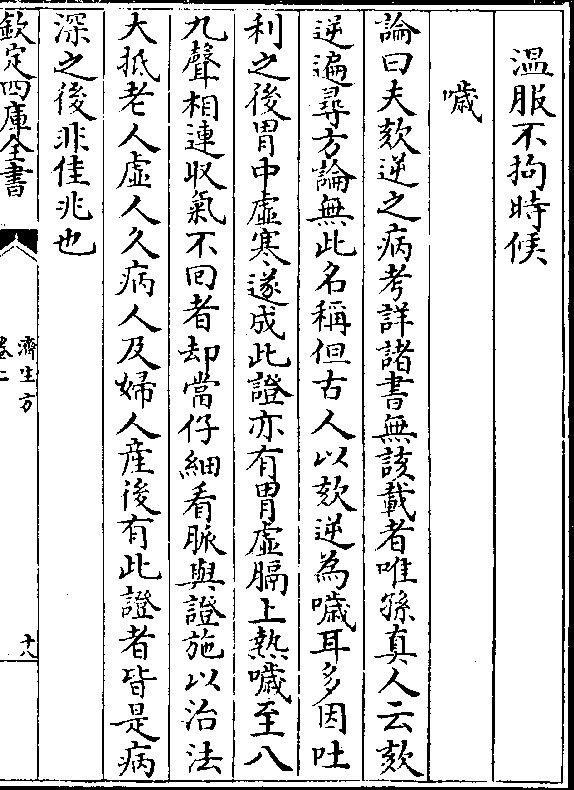 温服不拘時候
噦
論曰夫欬逆之病考詳諸書無該載者唯孫真人云欬
逆遍尋方論無此名稱但古人以欬逆為噦耳多因吐
利之後胃中虛寒遂成此證亦有胃虛膈上熱噦至八
九聲相連収氣不回者却當仔細看脈與證施以治法
大抵老人虛人久病人及婦人産後有此證者皆是病
深之後非佳兆也
欽定四庫全書
濟生方
卷二
十八